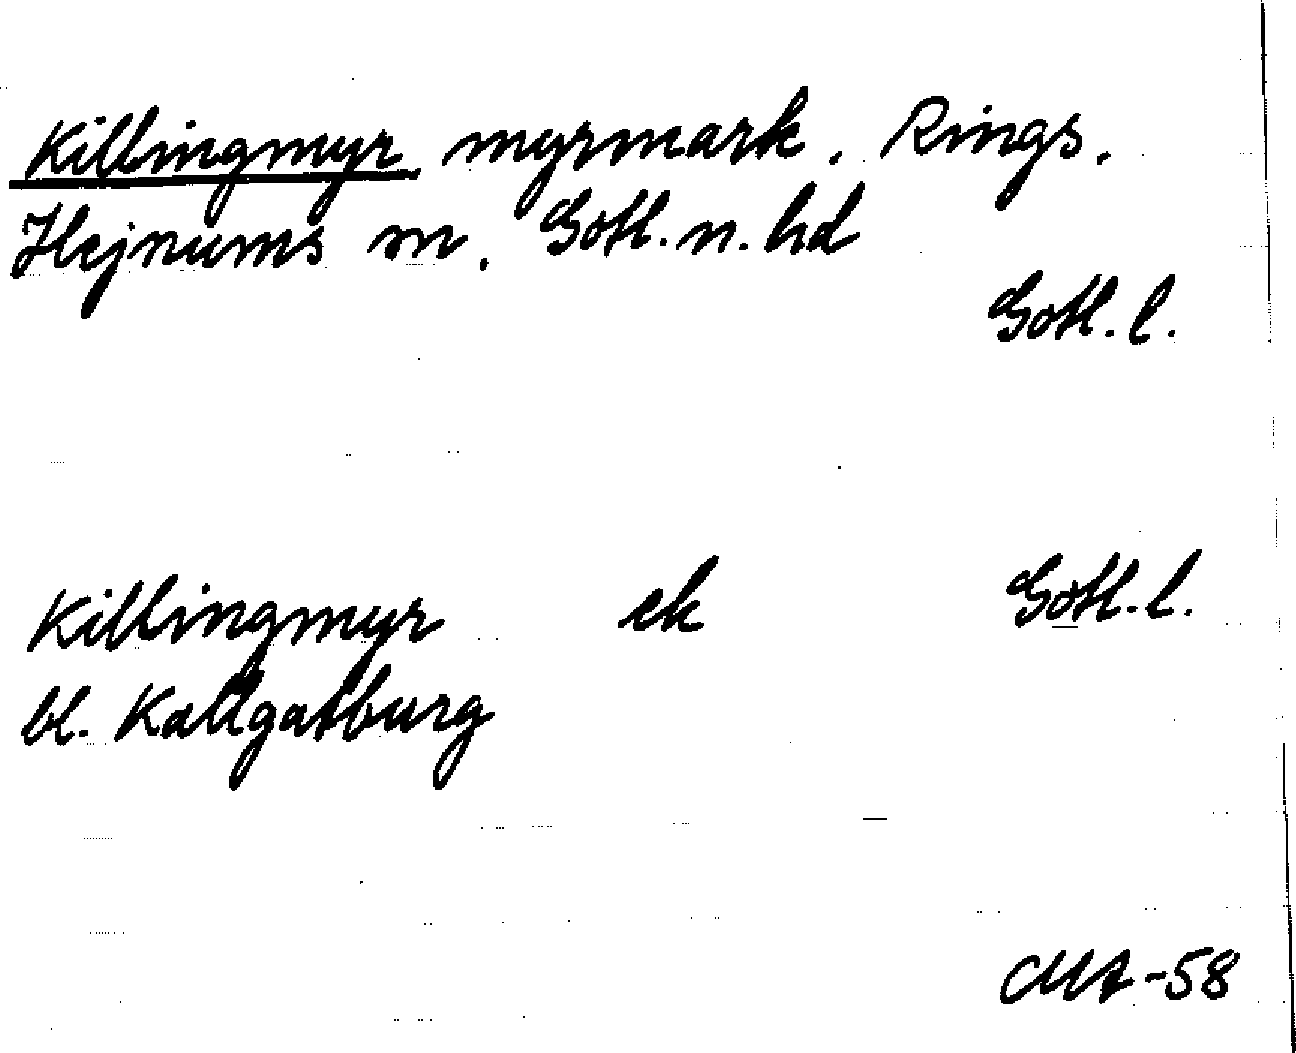 Killingmyr, myrmark, Rings,
Hejnums sn, Gotl. n. hd
Gotl. l.
Killingmyr ek Gotl. l.
bl. Kallgatburg
MA-58